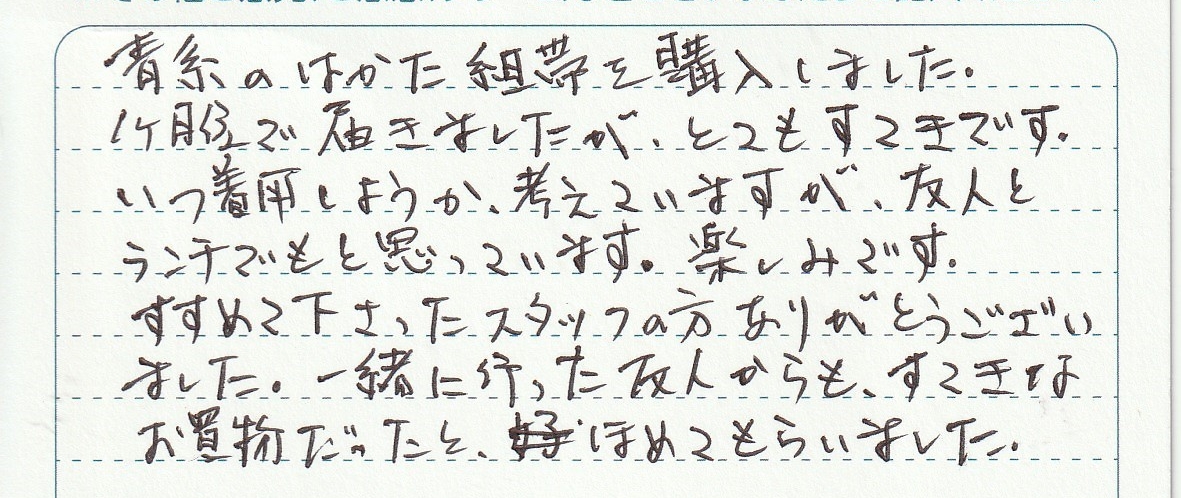 青系のはかた組帯を購入しました。
1ケ月位で届きましたが、とてもすてきです。
いつ着用しようか、考えていますが、友人と
ランチでもと思っています。楽しみです。
すすめて下さったスタッフの方ありがとうござい
ました。一緒に行った友人からも、すてきな
お買物だったと、ほめてもらいました。